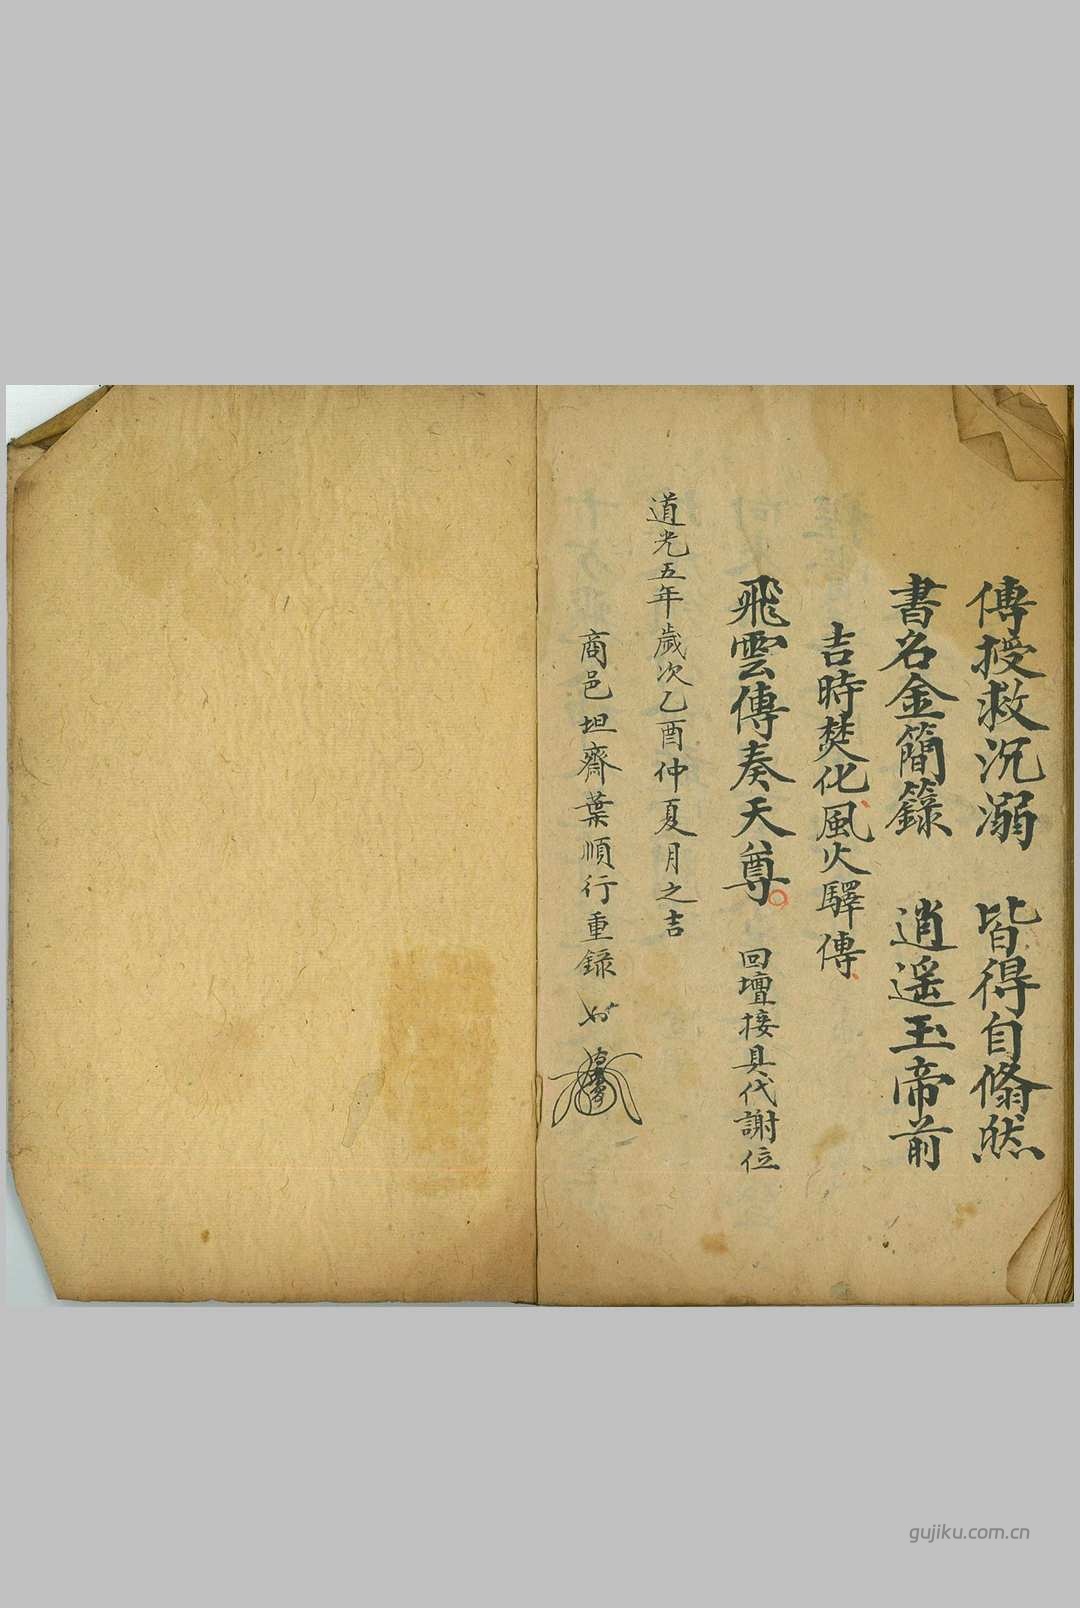 傳授救沉溺　皆得自翛然
書名金簡籙　逍遥玉帝前
吉時焚化風火驛傳
飛雲傳奏天尊　回壇接具代謝位
道光五年歲次乙酉仲夏月之吉
商邑坦齋葉順行重錄
gujiku.com.cn